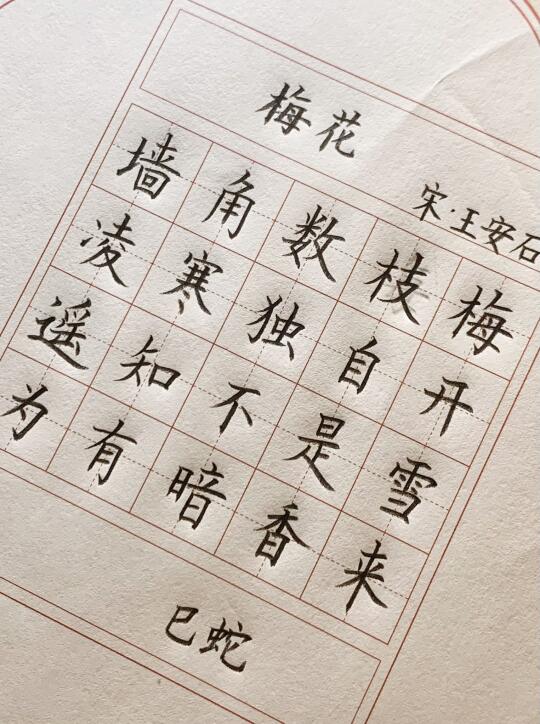 梅花
宋·王安石
墙角数枝梅
凌寒独自开
遥知不是雪
为有暗香来
巳蛇